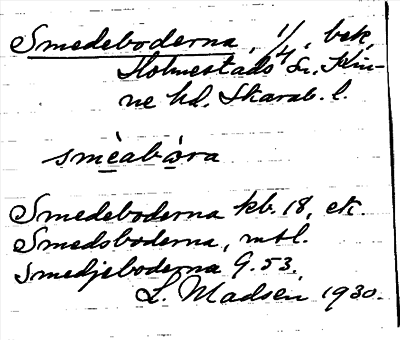 Smedeboderna, 1/4, bek.
Holmestads sn. Kin-
ne hd. Skarab. l.
smèabòra
Smedeboderna kb. 18, etc.
Smedsboderna, mtl.
Smedjeboderna G. 53.
L. Madsén, 1930.